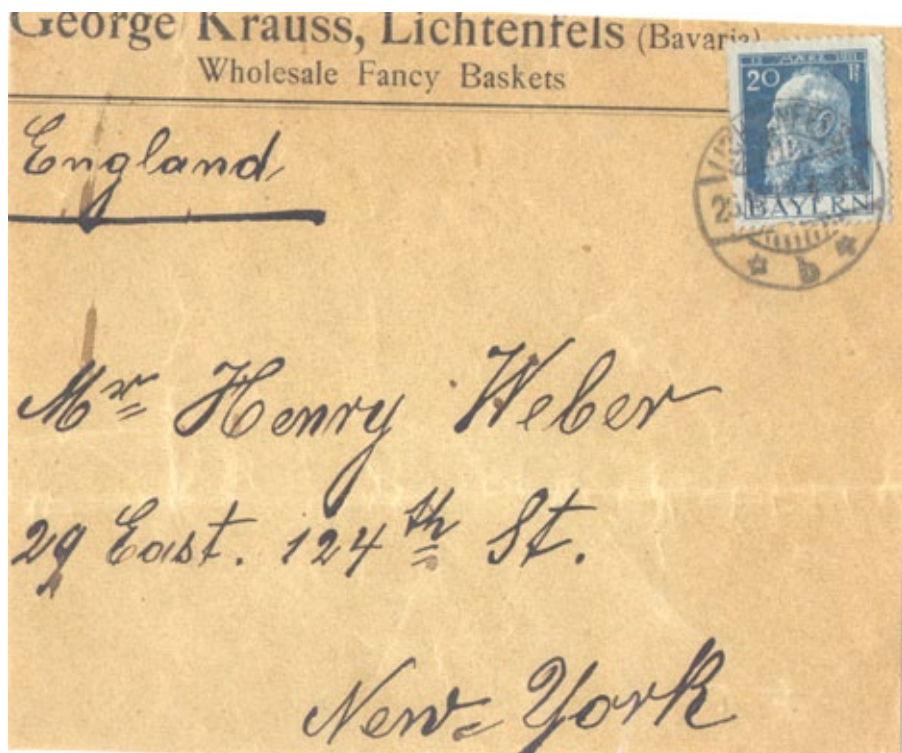 George Krauss, Lichtenfels (Bavaria)
Wholesale Fancy Baskets
12 MÄRZ 1911
20 Pf
BAYERN
b
England,
Mr Henry Weber
29 East. 124th St.
New-York